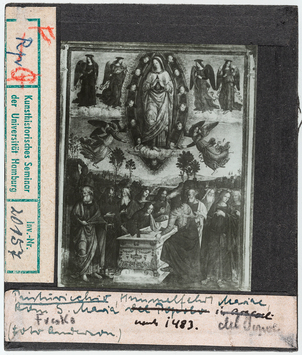 Kunsthistorisches Seminar
der Universität Hamburg
Inv.-Nr.
20157
Pinturicchio Himmelfahrt Mariae
Rom, S. Maria del Popolo in Aracoeli
Fresko nach 1483. del Popolo
(Foto Anderson)